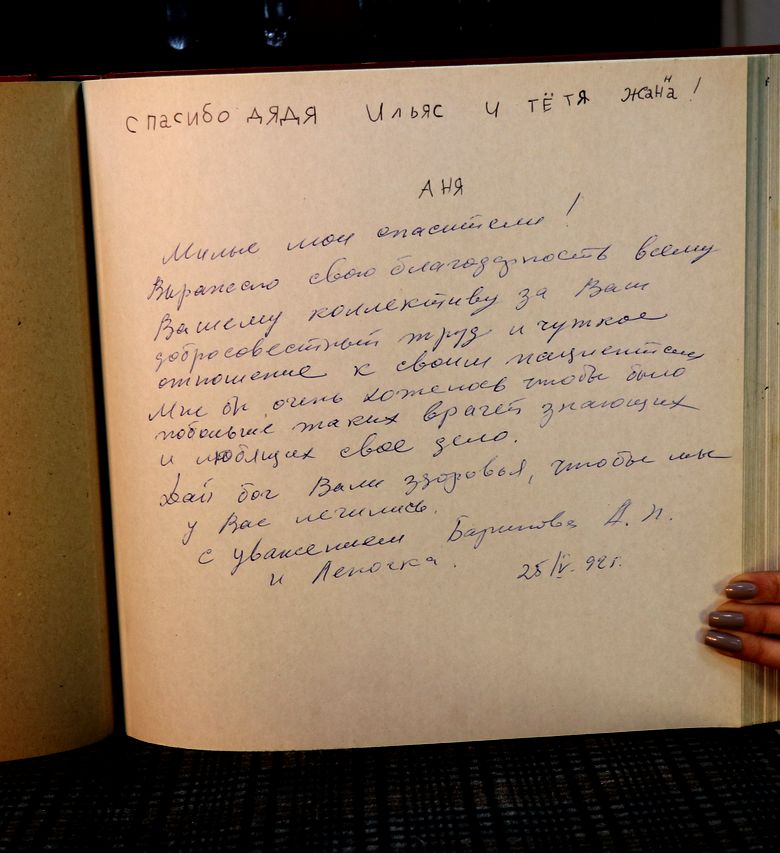 Спасибо дядя Ильяс и тётя Жанна!
Аня
Милые мои спасители!
Выражаю свою благодарность всему
Вашему коллективу за Ваш
добросовестный труд и чуткое
отношение к своим пациентам
Мне бы очень хотелось чтобы было
побольше таких врачей знающих
и любящих свое дело.
Дай бог Вам здоровья, чтобы мы
у Вас лечились.
с уважением Баринова Д. Н.
и Леночка.
25/IV. 92 г.